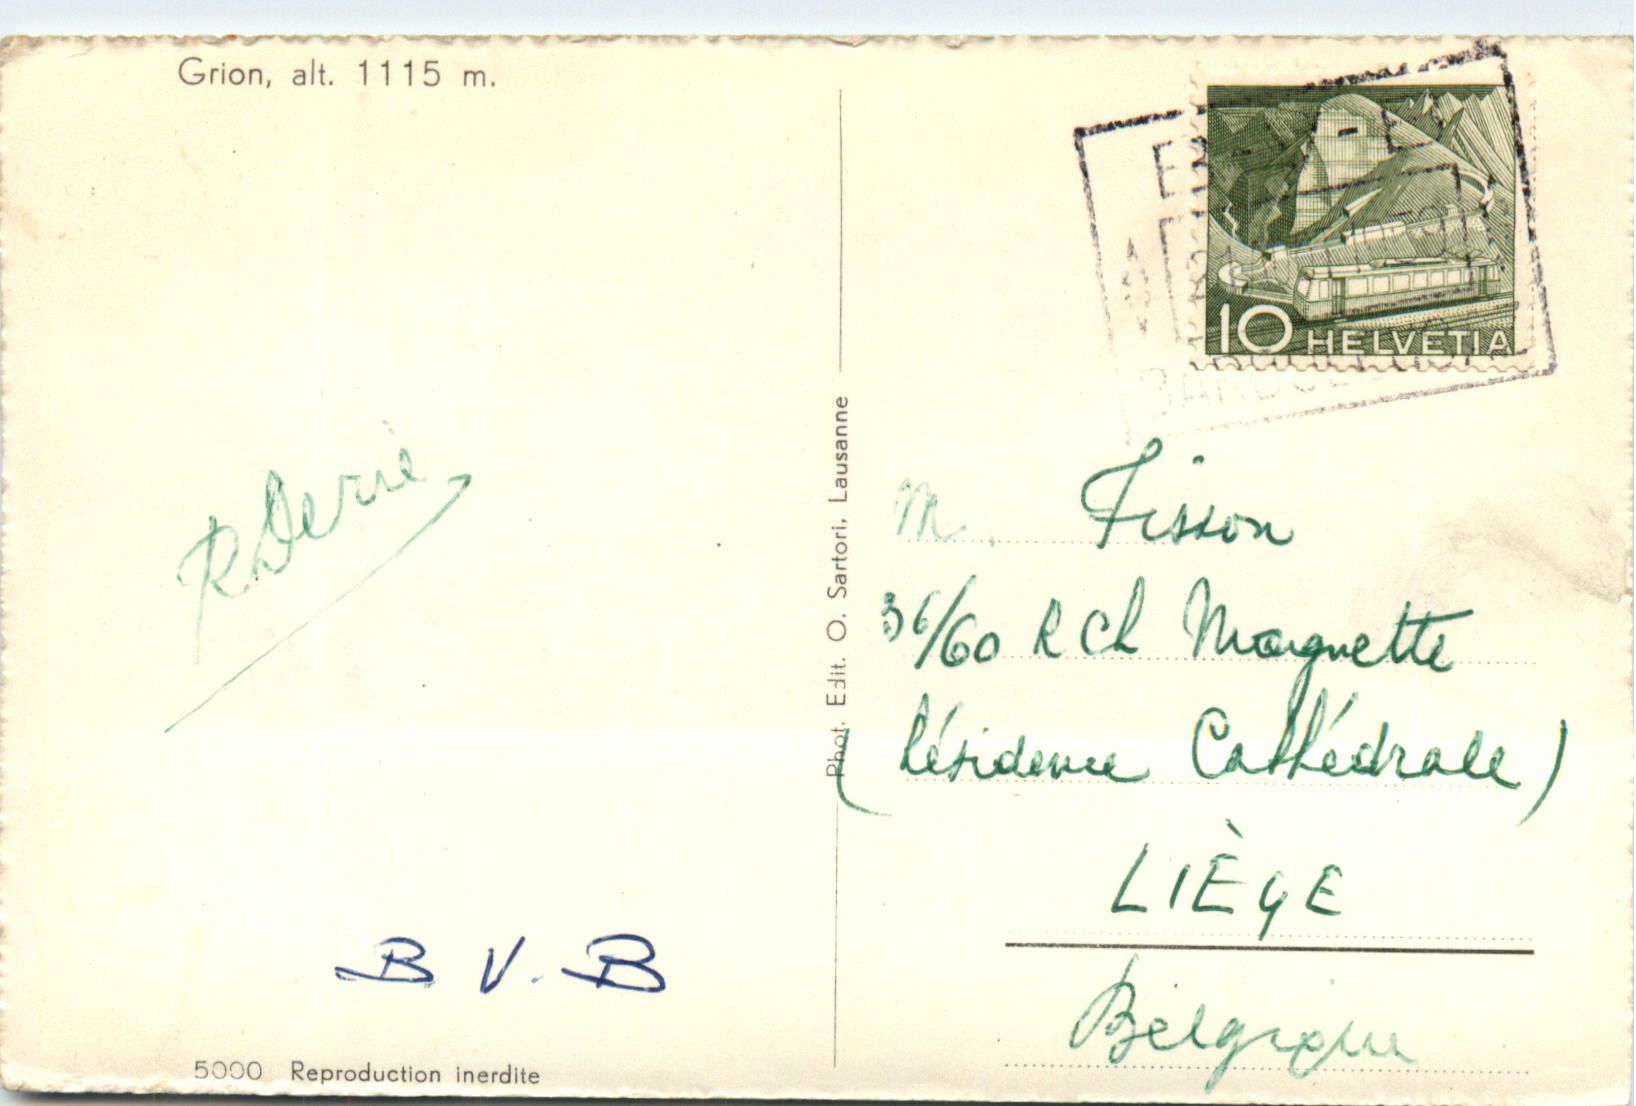 Grion, alt. 1115 m.
10 HELVETIA
R Derrié
Phot. Edit. O. Sartori, Lausanne
M. Fisson
36/60 R Ch Magnette
(Résidence Cathédrale)
LIÈGE
Belgique
B V. B
5000 Reproduction inerdite